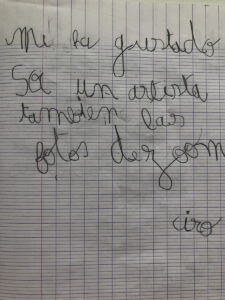 Mi ha gustado
Ser un artista
tambien las
fotos der zoom
ciro